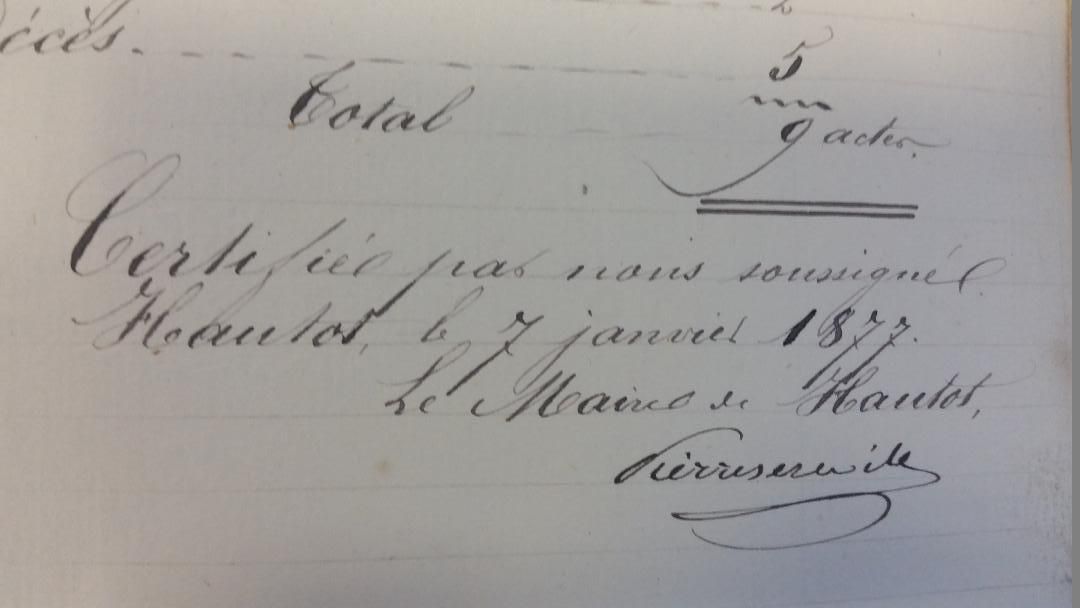 2
écès. 5
Total 9 actes.
Certifiée par nous soussigné
Hautot, le 7 janvier 1877.
Le Maire de Hautot,